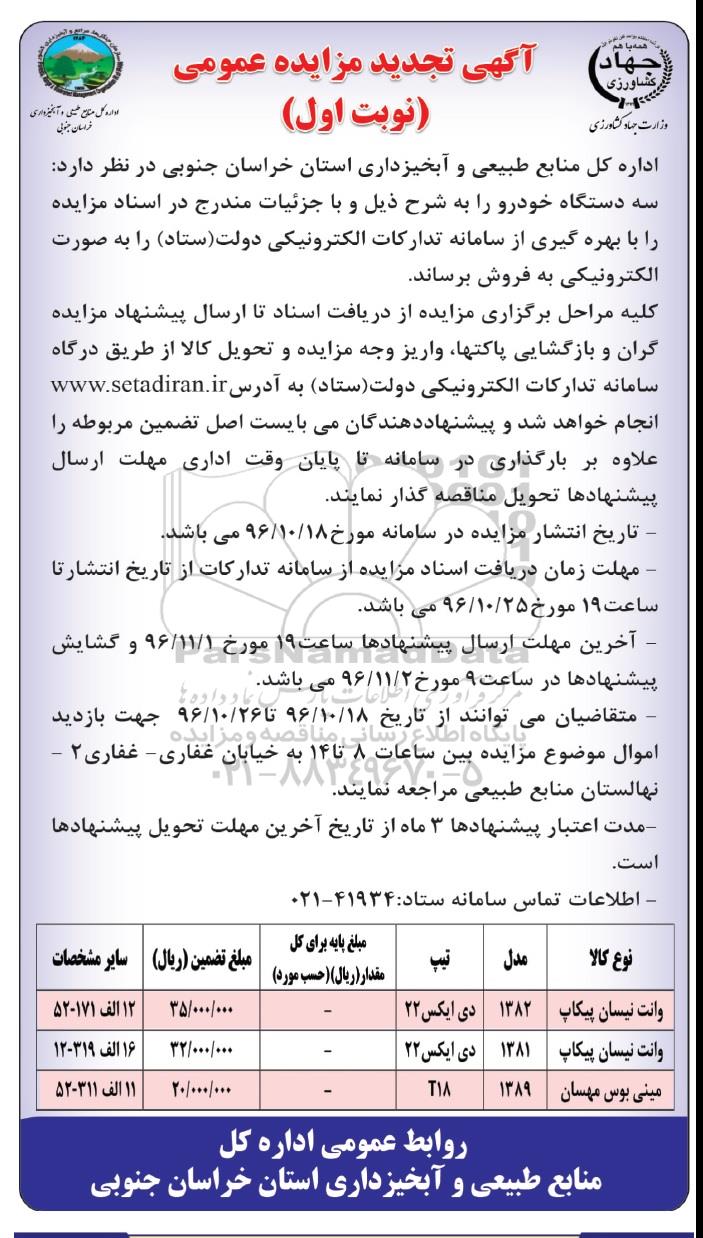 آگهی تجدید مزایده عمومی
(نوبت اول)
همه با هم
جهاد
کشاورزی
وزارت جهاد کشاورزی
اداره کل منابع طبیعی و آبخیزداری
خراسان جنوبی
اداره کل منابع طبیعی و آبخیزداری استان خراسان جنوبی در نظر دارد:
سه دستگاه خودرو را به شرح ذیل و با جزئیات مندرج در اسناد مزایده
را با بهره گیری از سامانه تدارکات الکترونیکی دولت(ستاد) را به صورت
الکترونیکی به فروش برساند.
کلیه مراحل برگزاری مزایده از دریافت اسناد تا ارسال پیشنهاد مزایده
گران و بازگشایی پاکتها، واریز وجه مزایده و تحویل کالا از طریق درگاه
سامانه تدارکات الکترونیکی دولت(ستاد) به آدرس www.setadiran.ir
انجام خواهد شد و پیشنهاددهندگان می بایست اصل تضمین مربوطه را
علاوه بر بارگذاری در سامانه تا پایان وقت اداری مهلت ارسال
پیشنهادها تحویل مناقصه گذار نمایند.
- تاریخ انتشار مزایده در سامانه مورخ ۹۶/۱۰/۱۸ می باشد.
- مهلت زمان دریافت اسناد مزایده از سامانه تدارکات از تاریخ انتشار تا
ساعت ۱۹ مورخ ۹۶/۱۰/۲۵ می باشد.
- آخرین مهلت ارسال پیشنهادها ساعت ۱۹ مورخ ۹۶/۱۱/۱ و گشایش
پیشنهادها در ساعت ۹ مورخ ۹۶/۱۱/۲ می باشد.
- متقاضیان می توانند از تاریخ ۹۶/۱۰/۱۸ تا ۹۶/۱۰/۲۶ جهت بازدید
اموال موضوع مزایده بین ساعات ۸ تا ۱۴ به خیابان غفاری- غفاری ۲ -
نهالستان منابع طبیعی مراجعه نمایند.
-مدت اعتبار پیشنهادها ۳ ماه از تاریخ آخرین مهلت تحویل پیشنهادها
است.
- اطلاعات تماس سامانه ستاد: ۴۱۹۳۴-۰۲۱
ParsNamadData
مرکز فرآوری اطلاعات پارس نماد داده ها
پایگاه اطلاع رسانی مناقصه و مزایده
۰۲۱-۸۸۳۴۹۶۷۰-۵
نوع کالا مدل تیپ مبلغ پایه برای کل مقدار(ریال)(حسب مورد) مبلغ تضمین (ریال) سایر مشخصات
وانت نیسان پیکاپ ۱۳۸۲ دی ایکس ۲۲ - ۳۵/۰۰۰/۰۰۰ ۱۲ الف ۱۷۱-۵۲
وانت نیسان پیکاپ ۱۳۸۱ دی ایکس ۲۲ - ۳۲/۰۰۰/۰۰۰ ۱۶ الف ۳۱۹-۱۲
مینی بوس مهسان ۱۳۸۹ T۱۸ - ۲۰/۰۰۰/۰۰۰ ۱۱ الف ۳۱۱-۵۲
روابط عمومی اداره کل
منابع طبیعی و آبخیزداری استان خراسان جنوبی